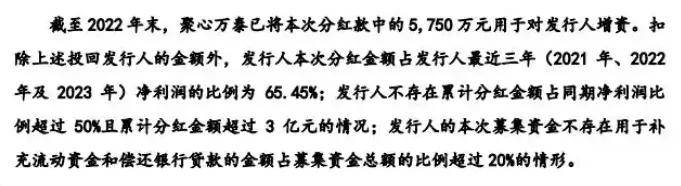 截至 2022 年末，聚心万泰已将本次分红款中的 5,750 万元用于对发行人增资。扣
除上述投回发行人的金额外，发行人本次分红金额占发行人最近三年（2021 年、2022
年及 2023 年）净利润的比例为 65.45%；发行人不存在累计分红金额占同期净利润比
例超过 50%且累计分红金额超过 3 亿元的情况；发行人的本次募集资金不存在用于补
充流动资金和偿还银行贷款的金额占募集资金总额的比例超过 20%的情形。